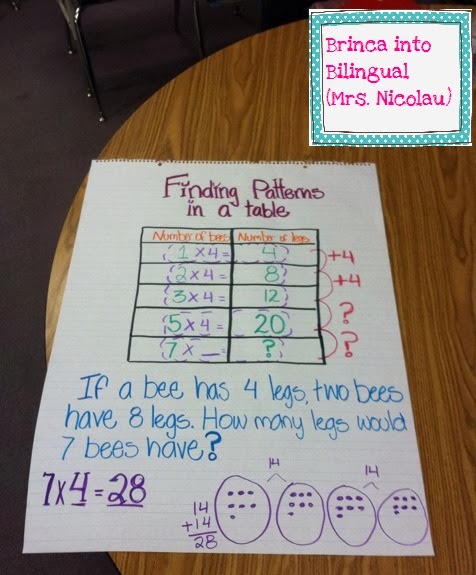 Brinca into
Bilingual
(Mrs. Nicolau)
Finding Patterns
in a table
Number of bees Number of legs
1 x 4 = 4
2 x 4 = 8
3 x 4 = 12
5 x 4 = 20
7 x __ = ?
+4
+4
?
?
If a bee has 4 legs, two bees
have 8 legs. How many legs would
7 bees have?
7x4=28
14
+14
28
14
14